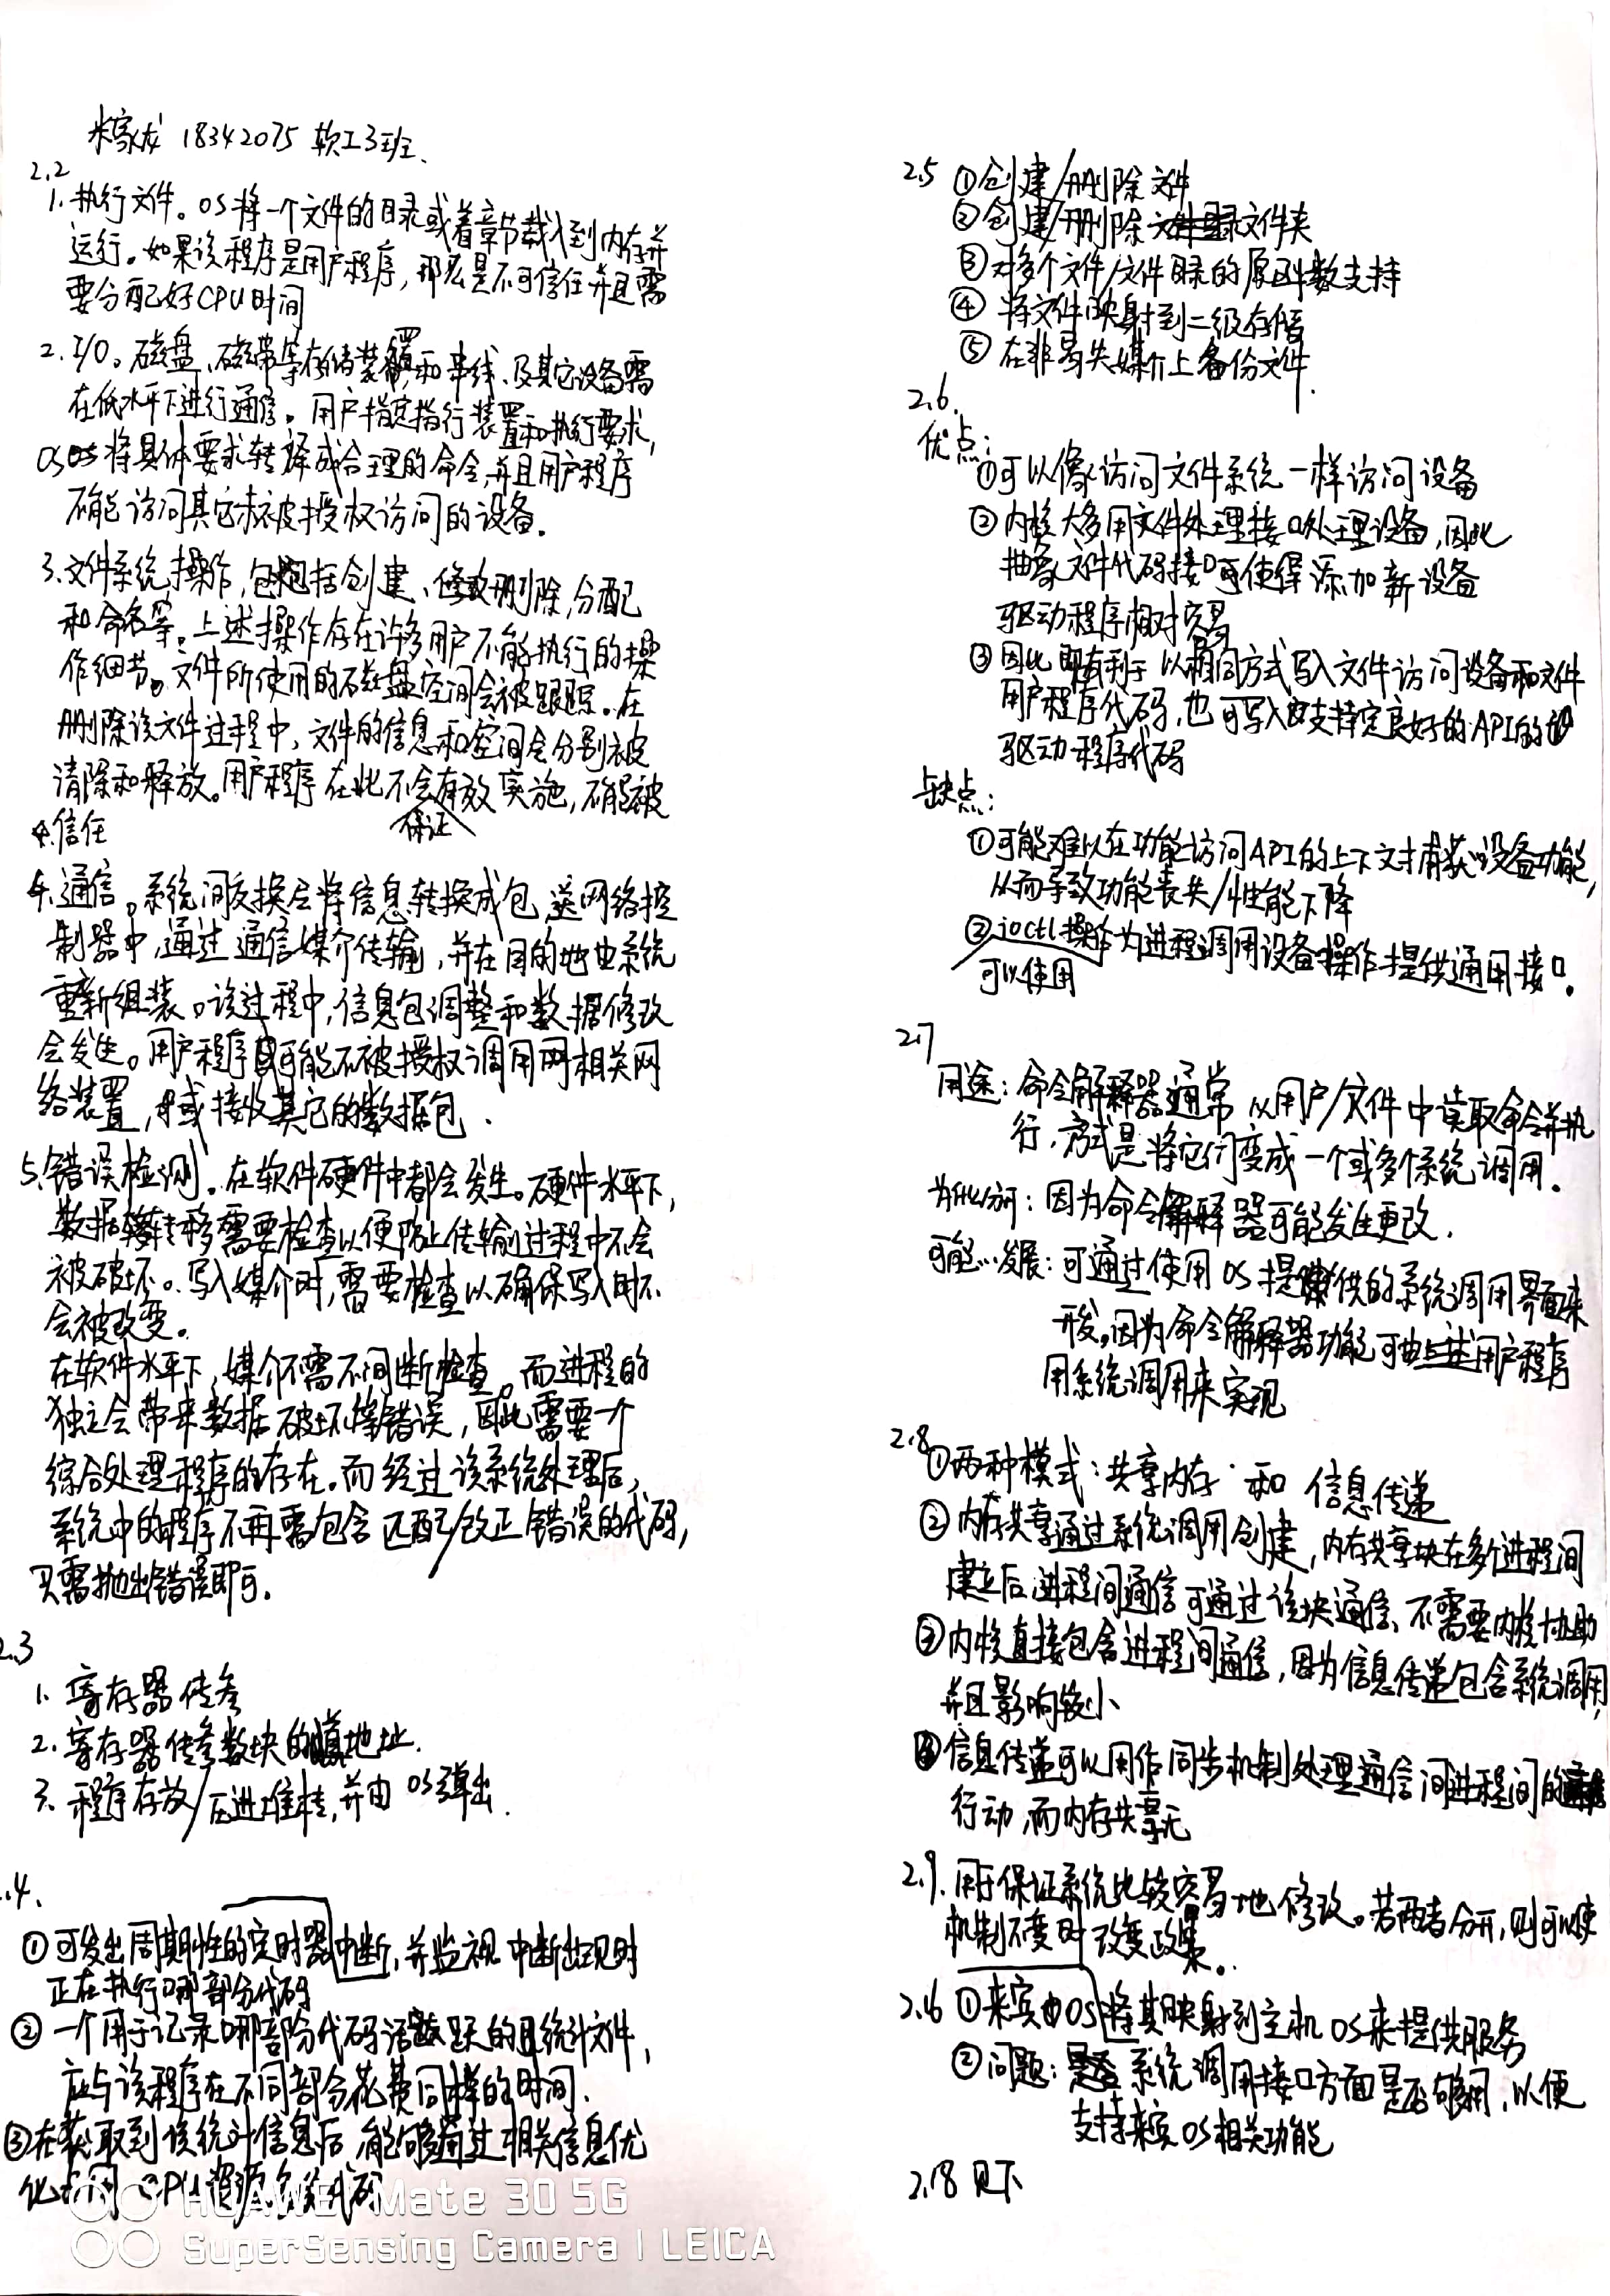 米家龙 18342075 软工3班.
2.2
1. 执行文件。OS将一个文件的目录或着章节载入到内存并
运行。如果该程序是用户程序，那么是不可信任并且需
要分配好CPU时间
2. I/O。磁盘、磁带等存储装置，和串线、及其它设备需
在低水平下进行通信。用户指定指行装置和执行要求，
OS将具体要求转译成合理的命令，并且用户程序
不能访问其它未被授权访问的设备.
3. 文件系统操作，包括创建、删除，分配
和命名等。上述操作存在许多用户不能执行的操
作细节。文件所使用的磁盘空间会被跟踪。在
删除该文件过程中，文件的信息和空间会分别被
清除和释放。用户程序在此不会保证有效实施，不能被
信任
4. 通信。系统间交换会将信息转换成包，送网络控
制器中，通过通信媒介传输，并在目的地由系统
重新组装。该过程中，信息包调整和数据修改
会发生。用户程序可能不被授权调用相关网
络装置，或接收其它的数据包.
5. 错误检测. 在软件硬件中都会发生。硬件水平下，
数据转移需要检查以便防止传输过程中不会
被破坏。写入媒介时，需要检查以确保写入时不
会被改变。
在软件水平下，媒介不需不间断检查。而进程的
独立会带来数据破坏等错误，因此需要一个
综合处理程序的存在。而经过该系统处理后，
系统中的程序不再需包含匹配/改正错误的代码，
只需抛出错误即可.
2.3
1. 寄存器传参
2. 寄存器传参数块的地址.
3. 程序存放/压进堆栈，并由OS弹出.
.4.
① 可发出周期性的定时器中断，并监视中断出现时
正在执行哪部分代码
② 一个用于记录哪部份代码活跃的统计文件，
应与该程序在不同部分花费同样的时间.
③ 在获取到该统计信息后，能够通过相关信息优
化 CPU资源 代码
HUAWEI Mate 30 5G
SuperSensing Camera | LEICA
2.5 ①创建/删除文件
② 创建/删除文件夹
③ 对多个文件/文件目录的原函数支持
④ 将文件映射到二级存储
⑤ 在非易失媒介上备份文件.
2.6.
优点：
①可以像访问文件系统一样访问设备
② 内核大多用文件处理接口处理设备，因此
抽象文件代码接口可使得添加新设备
驱动程序相对容易
③ 因此即有利于以相同方式写入文件访问设备和文件
用户程序代码，也可写入支持定良好的API的
驱动程序代码
缺点：
①可能难以在功能访问API的上下文捕获设备功能，
从而导致功能丧失/性能下降
② 可以使用ioctl操作为进程调用设备操作提供通用接口.
2.7
用途：命令解释器通常从用户/文件中读取命令并执
行，方式是将它们变成一个或多个系统调用.
为什么分开：因为命令解释器可能发生更改.
可能…发展：可通过使用OS提供的系统调用界面来
开发，因为命令解释器功能可由上述用户程序
用系统调用来实现
2.8
①两种模式：共享内存 和 信息传递
② 内存共享通过系统调用创建，内存共享块在多个进程间
建立后，进程间通信可通过该块通信，不需要内核协助
③ 内核直接包含进程间通信，因为信息传递包含系统调用，
并且影响较小
④ 信息传递可以用作同步机制处理通信间进程间的
行动，而内存共享无
2.9. 用于保证系统比较容易地修改。若两者分开，则可以使
机制不变时改变政策.
2.16 ① 来宾OS由将其映射到主机OS来提供服务
② 问题：系统调用接口方面是否够用，以便
支持来宾OS相关功能
2.18 见下